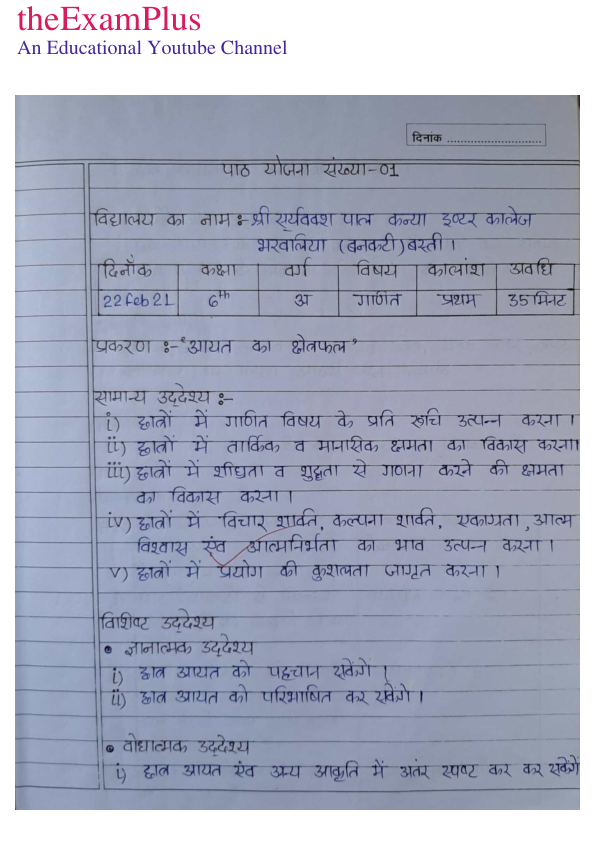 theExamPlus
An Educational Youtube Channel
दिनांक ............................
पाठ योजना संख्या-01
विद्यालय का नाम :- श्री सूर्यवक्श पाल कन्या इण्टर कालेज
भरवलिया (बनकटी) बस्ती ।
दिनाँक कक्षा वर्ग विषय कालांश अवधि
22 Feb 21 6th अ गणित प्रथम 35 मिनट
प्रकरण :- 'आयत का क्षेत्रफल'
सामान्य उद्देश्य :-
i) छात्रों में गणित विषय के प्रति रूचि उत्पन्न करना ।
ii) छात्रों में तार्किक व मानसिक क्षमता का विकास करना।
iii) छात्रों में शीघ्रता व शुद्धता से गणना करने की क्षमता
का विकास करना ।
iv) छात्रों में विचार शक्ति, कल्पना शक्ति, एकाग्रता, आत्म
विश्वास एंव आत्मनिर्भता का भाव उत्पन्न करना ।
v) छात्रों में प्रयोग की कुशलता जागृत करना ।
विशिष्ट उद्देश्य
• ज्ञानात्मक उद्देश्य
i) छात्र आयत को पहचान सकेंगे ।
ii) छात्र आयत को परिभाषित कर सकेंगे ।
• वोधात्मक उद्देश्य
i) छात्र आयत एंव अन्य आकृति में अतंर स्पष्ट कर कर सकेंगे